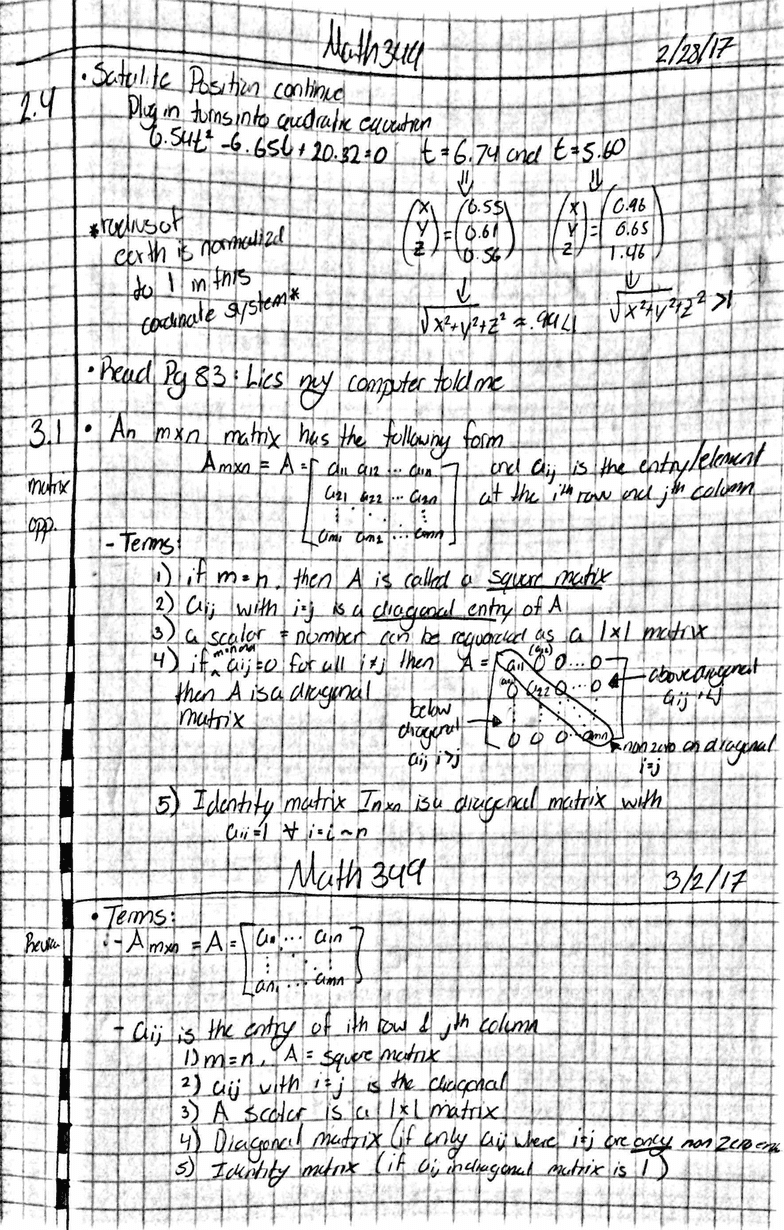 Math 344 2/28/17
2.4 • Satalite Position continue
Plug in turns into quadratic equation
0.54t² - 6.65t + 20.32 = 0 t = 6.74 and t = 5.60
⇓ ⇓
*radius of
earth is normalized
to 1 in this
coordinate system*
(x y z) = (0.55 0.61 0.56) (x y z) = (0.96 0.65 1.46)
↓ ⇓
√x²+y²+z² ≈ .99 < 1 √x²+y²+z² > 1
• Read Pg 83: Lies my computer told me
3.1 • An mxn matrix has the following form
matrix
opp.
Amxn = A = [a11 a12 ... a1n
a21 a22 ... a2n
⋮ ⋮ ⋱ ⋮
am1 am2 ... amn]
and aij is the entry/element
at the ith row and jth column
- Terms:
1) if m=n, then A is called a square matix
2) aij with i=j is a diagonal entry of A
3) a scalar = number can be reguarded as a 1x1 matrix
4) if ^ aij=0 for all i≠j then A =
m=n
then A is a diagonal
matrix
[a11 0 0 ... 0
0 a22 0 ... 0
⋮ ⋮ ⋱ ⋮
0 0 0 ... ann]
above diagonal
aij i<j
below
diagonal
aij i>j
non zero on diagonal
i=j
5) Identity matrix Inxn is a diagonal matrix with
aii=1 ∀ i=i~n
Math 344 3/2/17
• Terms:
- Amxn = A = [a11 ... a1n
⋮ ⋱ ⋮
am1 ... amn]
- aij is the entry of ith row & jth column
1) m=n, A = square matrix
2) aij with i=j is the diagonal
3) A scalar is a 1x1 matrix
4) Diagonal matrix (if only aij where i=j are only non zero
5) Identity matrix (if aij in diagonal matrix is 1)